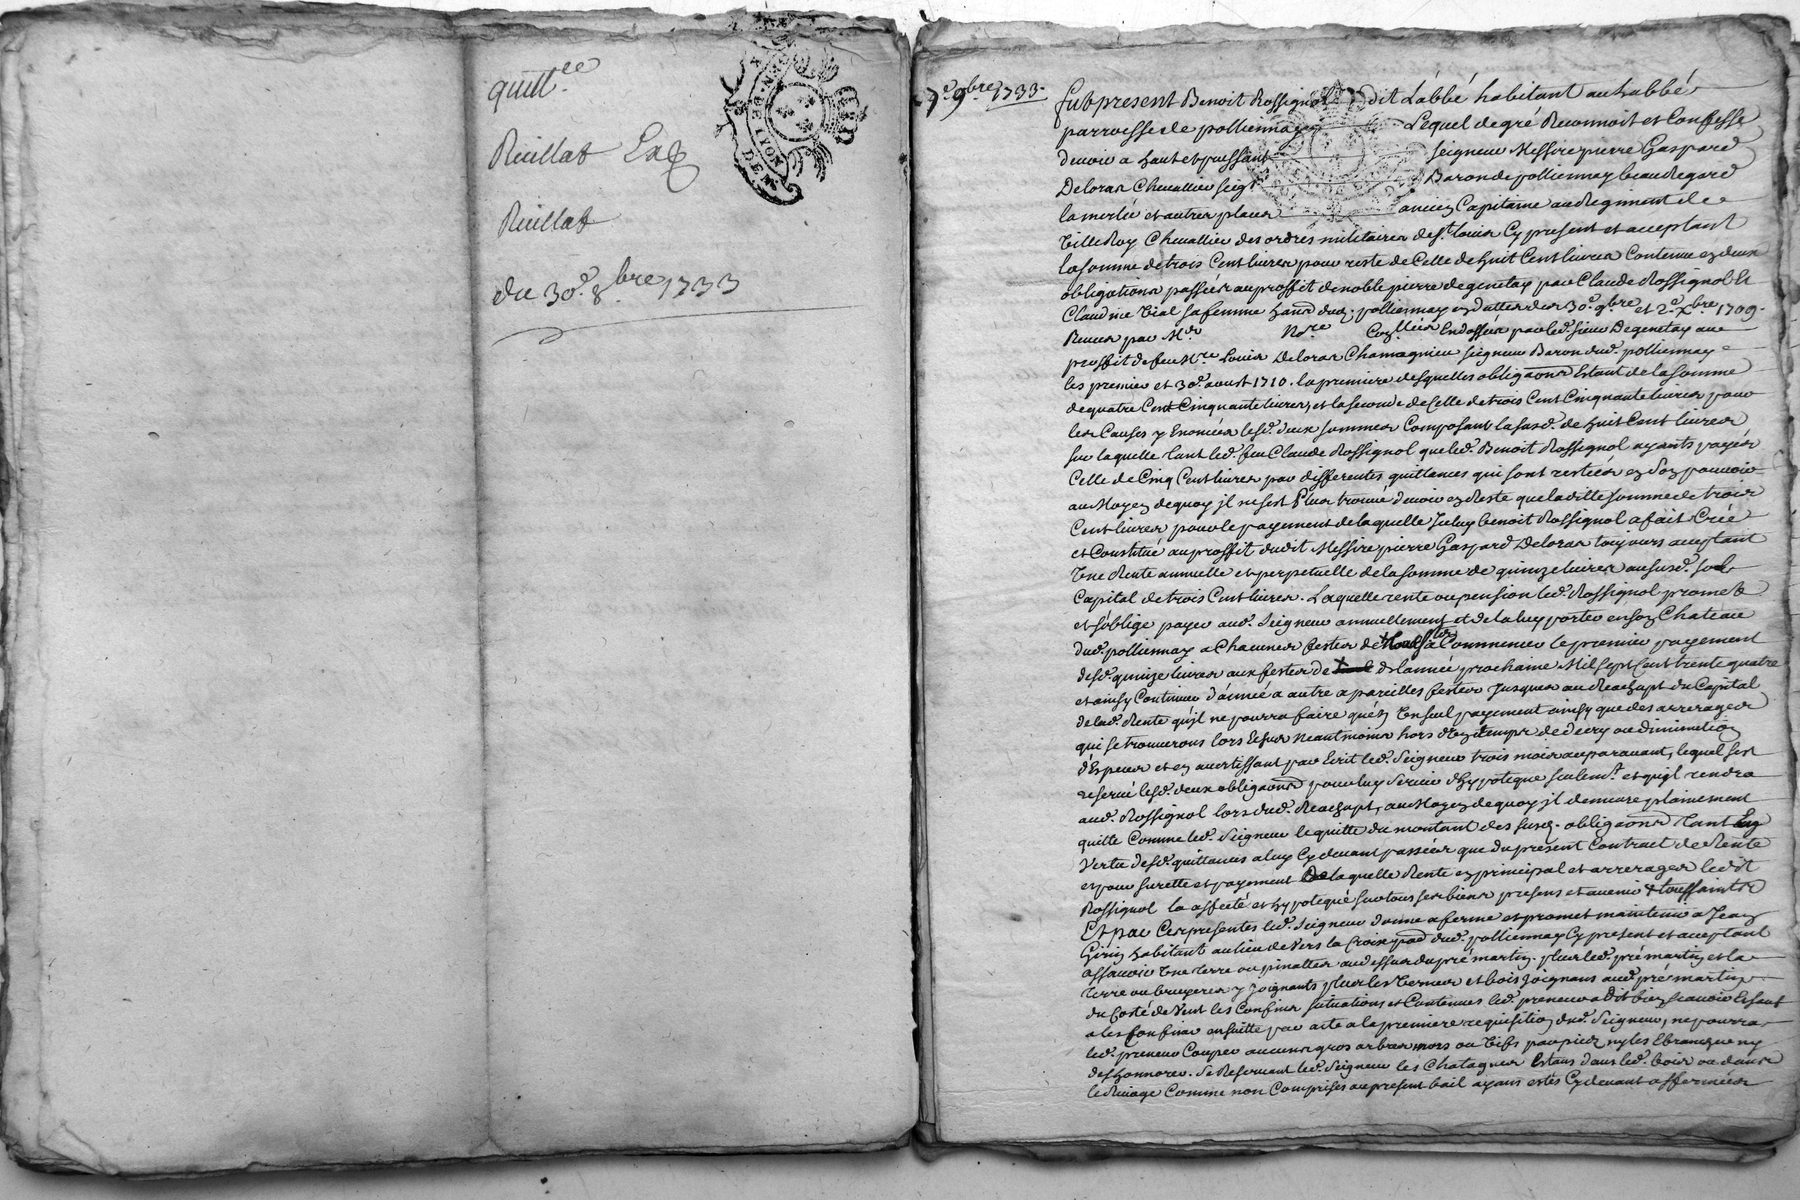 quitt.ce
Ruillat
Ruillat
du 30.e 8.bre 1733
GEN. DE LYON
DEN.
7.e 9bre 1733.
fut present Benoit Rossignol dit L'abbé habitant au Labbé
parroisse de polliennay Lequel de gré Reconnoit et Confesse
devoir a haut et puissant seigneur Messire pierre Gaspard
Deloras Chevallier seigr Baron de polliennay beauregard
lamerlée et autres places ancien Capitaine au Regiment de
Villeroy Chevallier des ordres militaires de St Louis Cy present et acceptant
la somme de trois Cent livres pour reste de Celle de huit Cent livres Contenue en deux
obligations passées au proffit de noble pierre degenetay par Claude Rossignol Et
Claudine Vial sa femme polliennay en datte des 30.e 9bre et 2.e Xbre 1709.
Receues par M.e No.re Endossées par led. sieur Degenetay au
proffit de feu M.re Louis Deloras Chamagnieu seigneur Baron dud. polliennay
les premier et 30.e aoust 1710. la premiere desquelles obligaons Estant de la somme
de quatre Cent Cinquante livres, et la seconde de Celle de trois Cent Cinquante livres pour
les Causes y Enoncées lesd. deux sommes Composant la susd. de huit Cent livres
sur laquelle tant led. feu Claude Rossignol que led. Benoit Rossignol ayants payés
Celle de Cinq Cent livres par differentes quittances qui sont restées en son pouvoir
au Moyen de quoy jl ne s'est plus trouvé devoir en Reste que la ditte somme de trois
Cent livres pour le payement de laquelle Jceluy benoit Rossignol a fait Créé
et Constitué au proffit dudit Messire pierre Gaspard Deloras toujours acceptant
Vne Rente annuelle et perpetuelle de la somme de quinze livres au susd. sort
Capital de trois Cent livres. Laquelle rente ou pension led. Rossignol promet
et s'oblige payer aud. Seigneur annuellement et de la luy porter en son Chateau
dud. polliennay a Chacunes festes de Commencer le premier payement
desd. quinze livres aux festes de de l'année prochaine Mil sept Cent trente quatre
et ainsy Continuer d'année a autre a pareilles festes Jusques au Reachapt du Capital
de lad. Rente qu'jl ne pourra faire qu'en Vn seul payement ainsy que des arrerages
qui se trouverons lors Echus neantmoins hors de tempr de decry ou diminution
d'Espeuer et en avertissant par Ecrit led. Seigneur trois mois auparavant, lequel s'est
reservé lesd. deux obligaons pour luy Servir d'hypoteque seulemt. et qu'jl rendra
aud. Rossignol lors dud. Reachapt, au Moyen de quoy jl demeure plainement
quitte Comme led. Seigneur le quitte du montant des susd. obligaons tant En
Vertu desd. quittances a luy Cy devant passées que du present Contract de Rente
et pour surette et payement De laquelle Rente en principal et arrerages ledit
Rossignol la affecté et hypotequé sur tous ses biens presens et avenir + toussaints
Et par Ces presentes led. Seigneur donne a ferme et promet maintenir a Jean
Girin habitant au lieu de Vers la Croix dud. polliennay Cy present et acceptant
assavoir Vne terre ou pinattes au dessus du pré martin. plus led. pré martin et la
terre ou bruyeres y Joignants plus les Verneres et bois Joignans aud. pré martin
du Costé de Vent les Confins situations et Contenues led. preneur a dit bien scavoir Et sauf
a les Confiner ensuitte par acte a la premiere requisition dud. Seigneur, ne pourra
led. preneur Couper aucuns gros arbres mors ou Vifs par pied ny les Ebrancher ny
des honnorer. se Reservent led. Seigneur les Chatagners Estans dans led. bois ou dans
le Rivage Comme non Comprises au present bail ayans estés Cy devant affermées